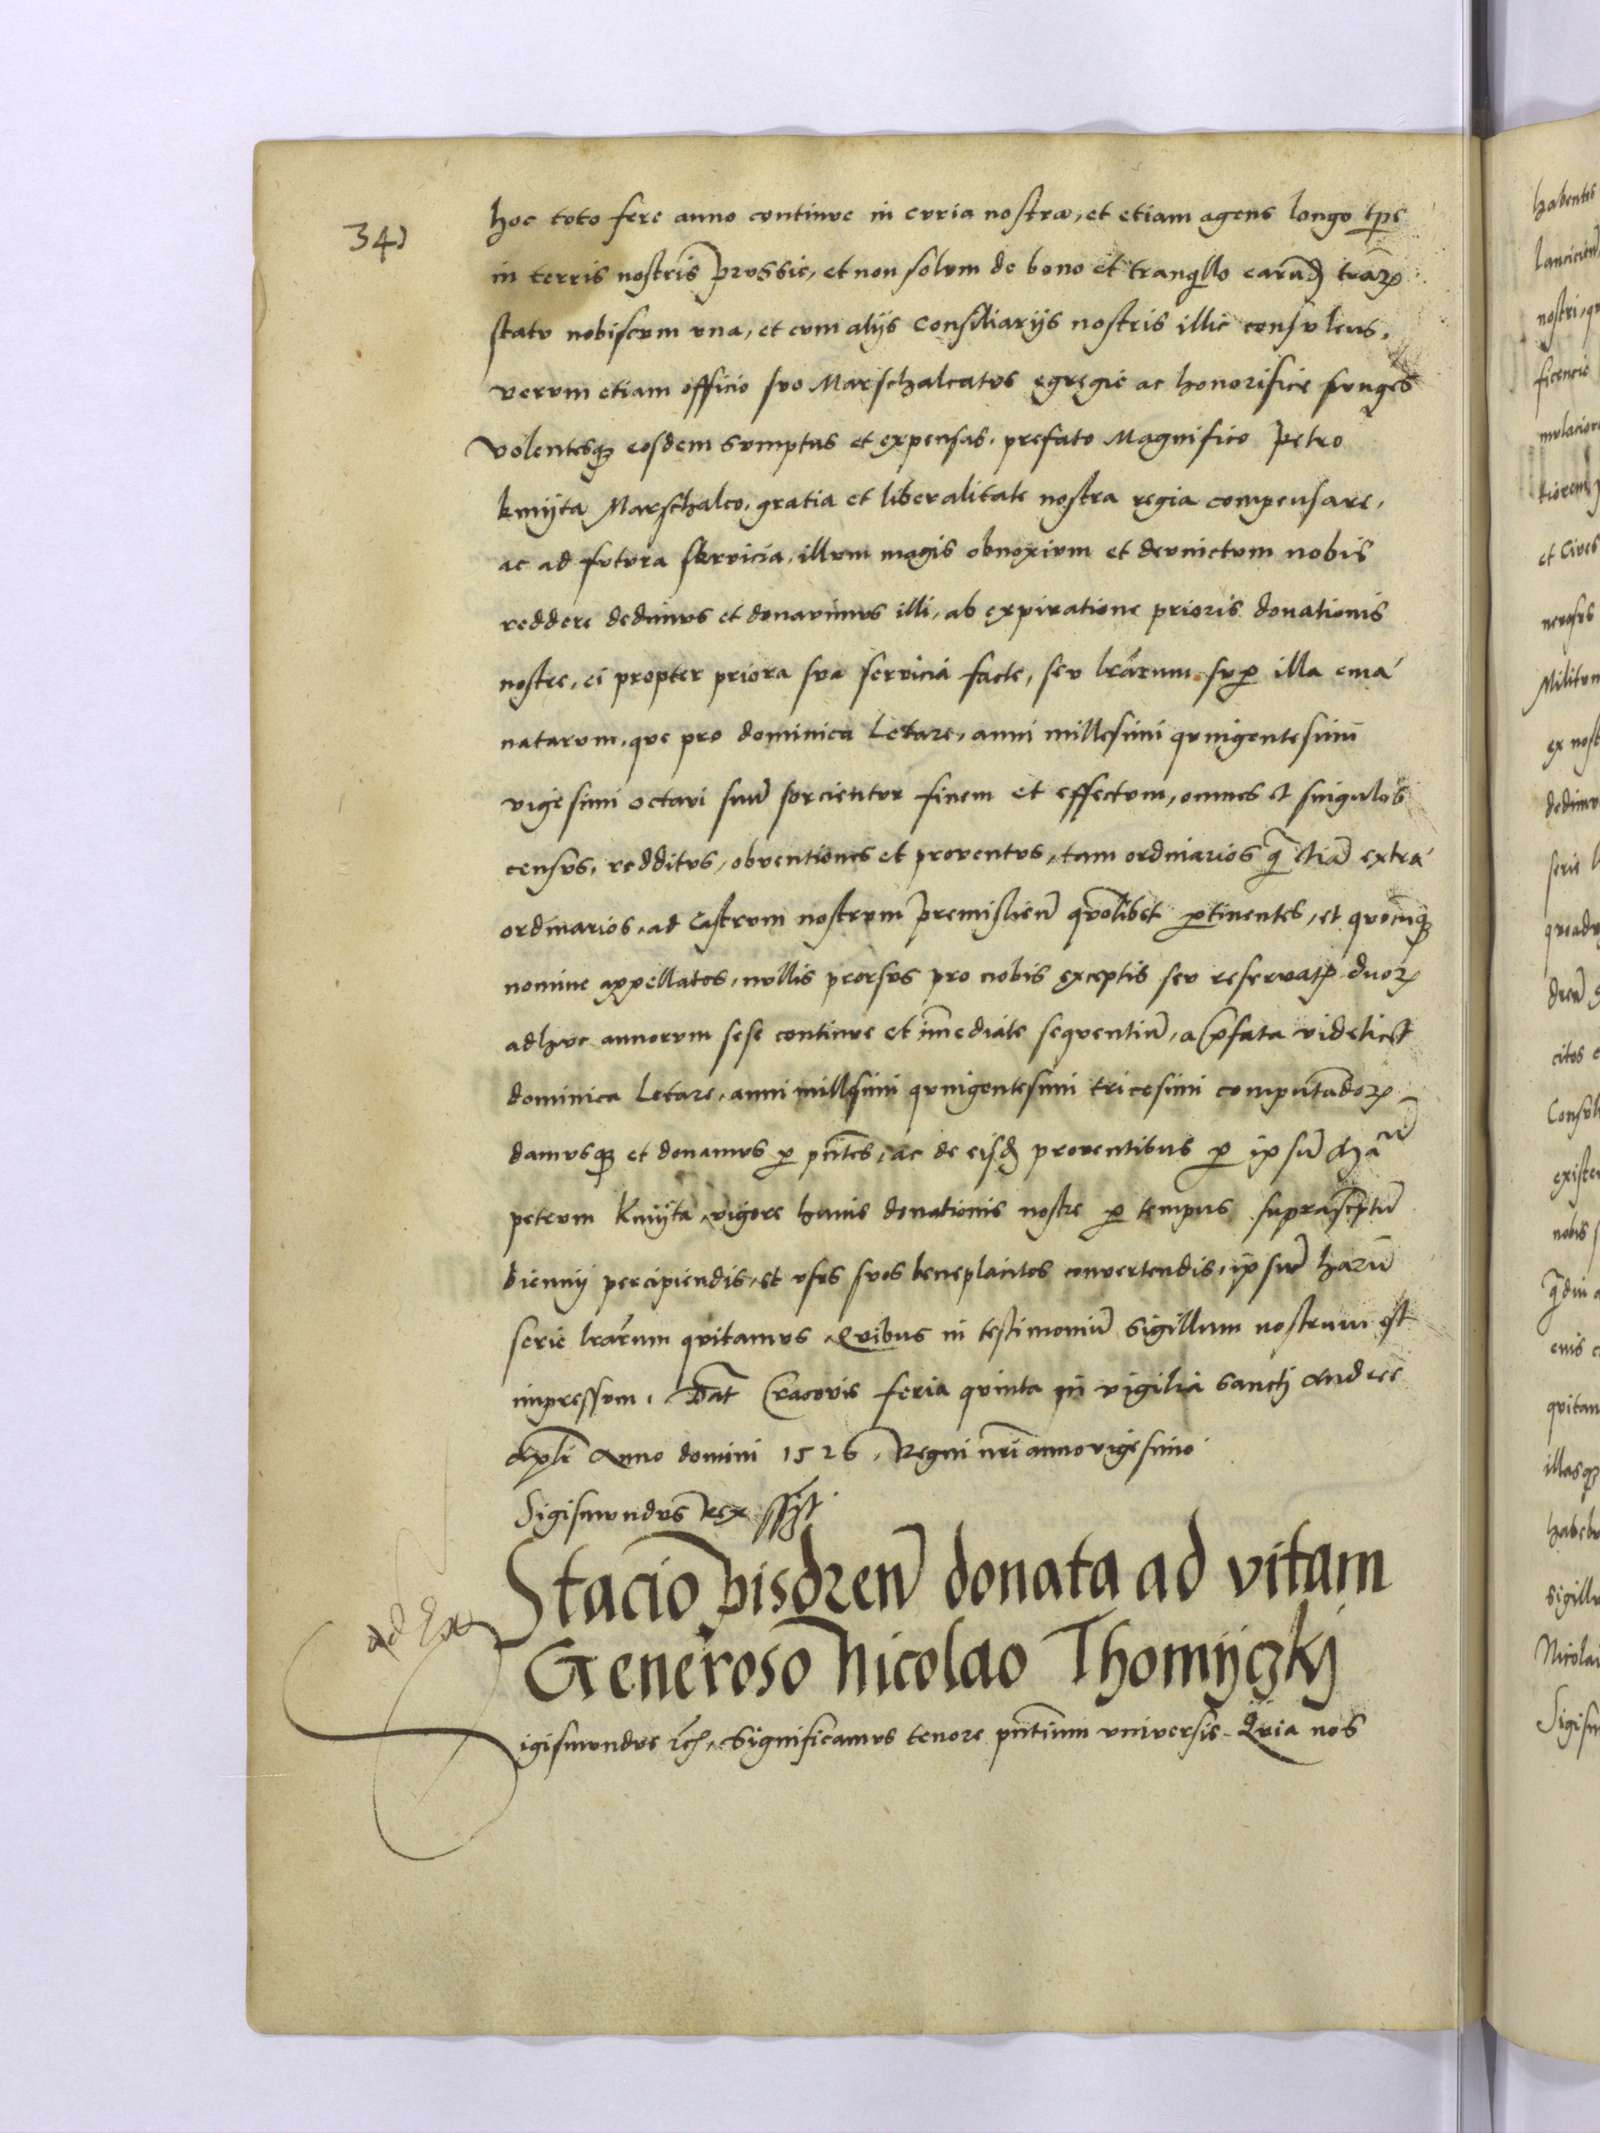 340
hoc toto fere anno continue in curia nostra, et etiam agens longo tpe
in terris nostris prussie, et non solum de bono et tranqllo earūd trarȝ
statu nobiscum vna, et cum alijs Consiliarijs nostris illic consulens,
verum etiam officio suo Marschalcatus egregie ac honorifice fungēs
volentesqȝ eosdem sumptus et expensas, prefato Magnifico Petro
kmijta Marschalco, gratia et liberalitate nostra regia compensare,
ac ad futura servicia, illum magis obnoxium et devinctum nobis
reddere dedimus et donavimus illi, ab expiratione prioris donationis
nostre, ei propter priora sua servicia facte, seu lrarum sup illa ema
natarum, que pro dominica Letare, anni millesimi quingentesimi
vigesimi octavi suū sorcientur finem et effectum, omnes et singulos
census, redditus, obventiones et proventus, tam ordinarios q̄ etiā extra
ordinarios, ad Castrum nostrum premislień quolibet ptinentes, et quocūqȝ
nomine appellatos, nullis prorsus pro nobis exceptis seu reservatȝ duorȝ
adhuc annorum sese continue et īmediate sequentiū, a pfata videlicet
dominica Letare, anni millesimi quingentesimi tricesimi computādorȝ
damusqȝ et donamus p pn̄tes, ac de eisd proventibus p ipsū Mācū
petrum Kmijta, vigore huius donationis nostre p tempus suprascptū
biennij percipiendis, et usus suos beneplacitos convertendis, ipsū harū
serie lrarum quitamus Quibus in testimoniū Sigillum nostrum est
impressum. Dat Cracovie feria quinta in vigilia Sancti Andree
Apli Anno domini 1526, Regni nr̄i anno vigesimo
Sigismundus Rex sst
Stacio pisdreń donata ad vitam
Generoso Nicolao Thomijczkj
igismundus rc̄, Significamus tenore pn̄tium vniversis Quia nos